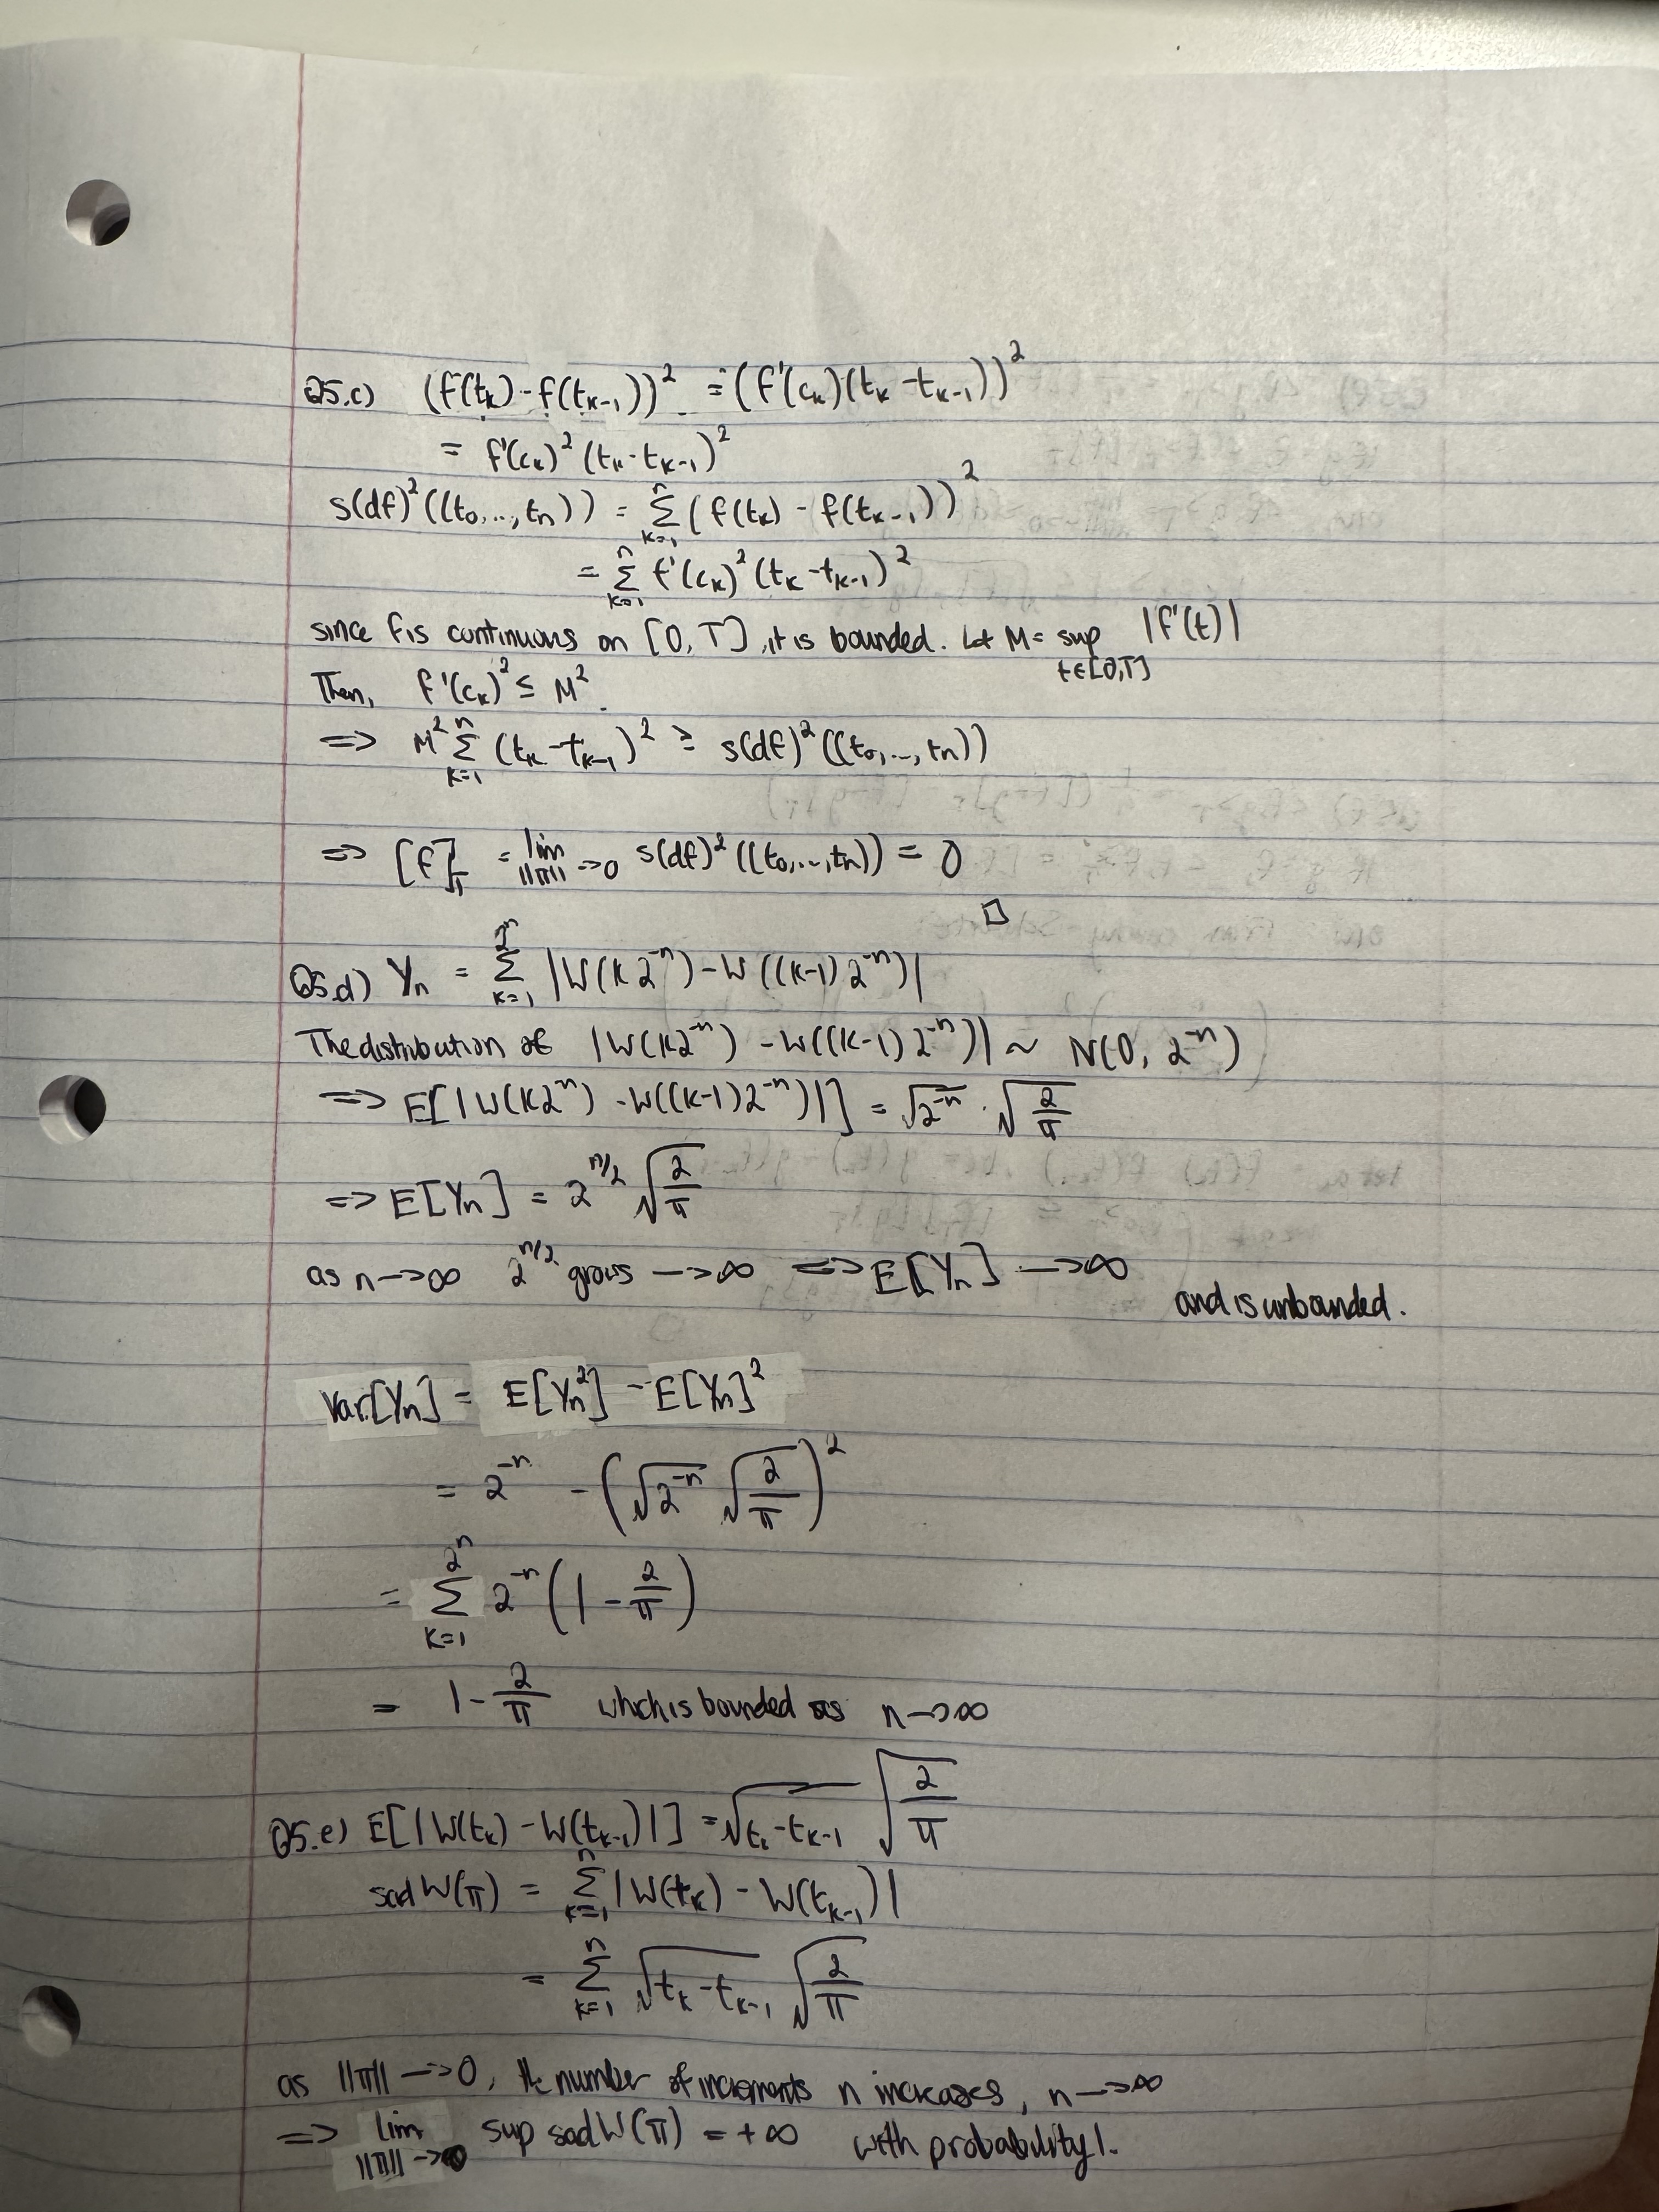 Q5.c) (f(tₖ) - f(tₖ₋₁))² = (f'(cₖ)(tₖ - tₖ₋₁))²
= f'(cₖ)² (tₖ - tₖ₋₁)²
s(df)²((t₀,..,tₙ)) = Σₖ₌₁ⁿ (f(tₖ) - f(tₖ₋₁))²
= Σₖ₌₁ⁿ f'(cₖ)² (tₖ - tₖ₋₁)²
since f is continuous on [0, T], it is bounded. Let M = sup_{t∈[0,T]} |f'(t)|
Then, f'(cₖ)² ≤ M².
=> M² Σₖ₌₁ⁿ (tₖ - tₖ₋₁)² ≥ s(df)²((t₀,..,tₙ))
=> [f]_T = lim_{||π||→0} s(df)²((t₀,..,tₙ)) = 0
□
Q5.d) Yₙ = Σₖ₌₁^{2ⁿ} |W(k2⁻ⁿ) - W((k-1)2⁻ⁿ)|
The distribution of |W(k2⁻ⁿ) - W((k-1)2⁻ⁿ)| ~ N(0, 2⁻ⁿ)
=> E[|W(k2⁻ⁿ) - W((k-1)2⁻ⁿ)|] = √2⁻ⁿ · √(2/π)
=> E[Yₙ] = 2^{n/2} √(2/π)
as n→∞ 2^{n/2} grows →∞ => E[Yₙ] →∞
and is unbounded.
Var[Yₙ] = E[Yₙ²] - E[Yₙ]²
= 2⁻ⁿ - (√2⁻ⁿ √(2/π))²
= Σₖ₌₁^{2ⁿ} 2⁻ⁿ (1 - 2/π)
= 1 - 2/π which is bounded as n→∞
Q5.e) E[|W(tₖ) - W(tₖ₋₁)|] = √(tₖ - tₖ₋₁) √(2/π)
sad W(π) = Σₖ₌₁ⁿ |W(tₖ) - W(tₖ₋₁)|
= Σₖ₌₁ⁿ √(tₖ - tₖ₋₁) √(2/π)
as ||π||→0, the number of increments n increases, n→∞
=> lim_{||π||→0} sup sad W(π) = +∞ with probability 1.